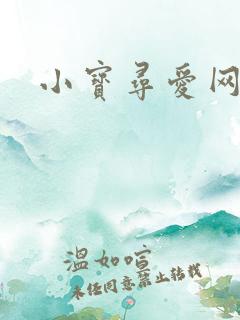 小寶尋愛网
溫如喧
未经同意禁止转载